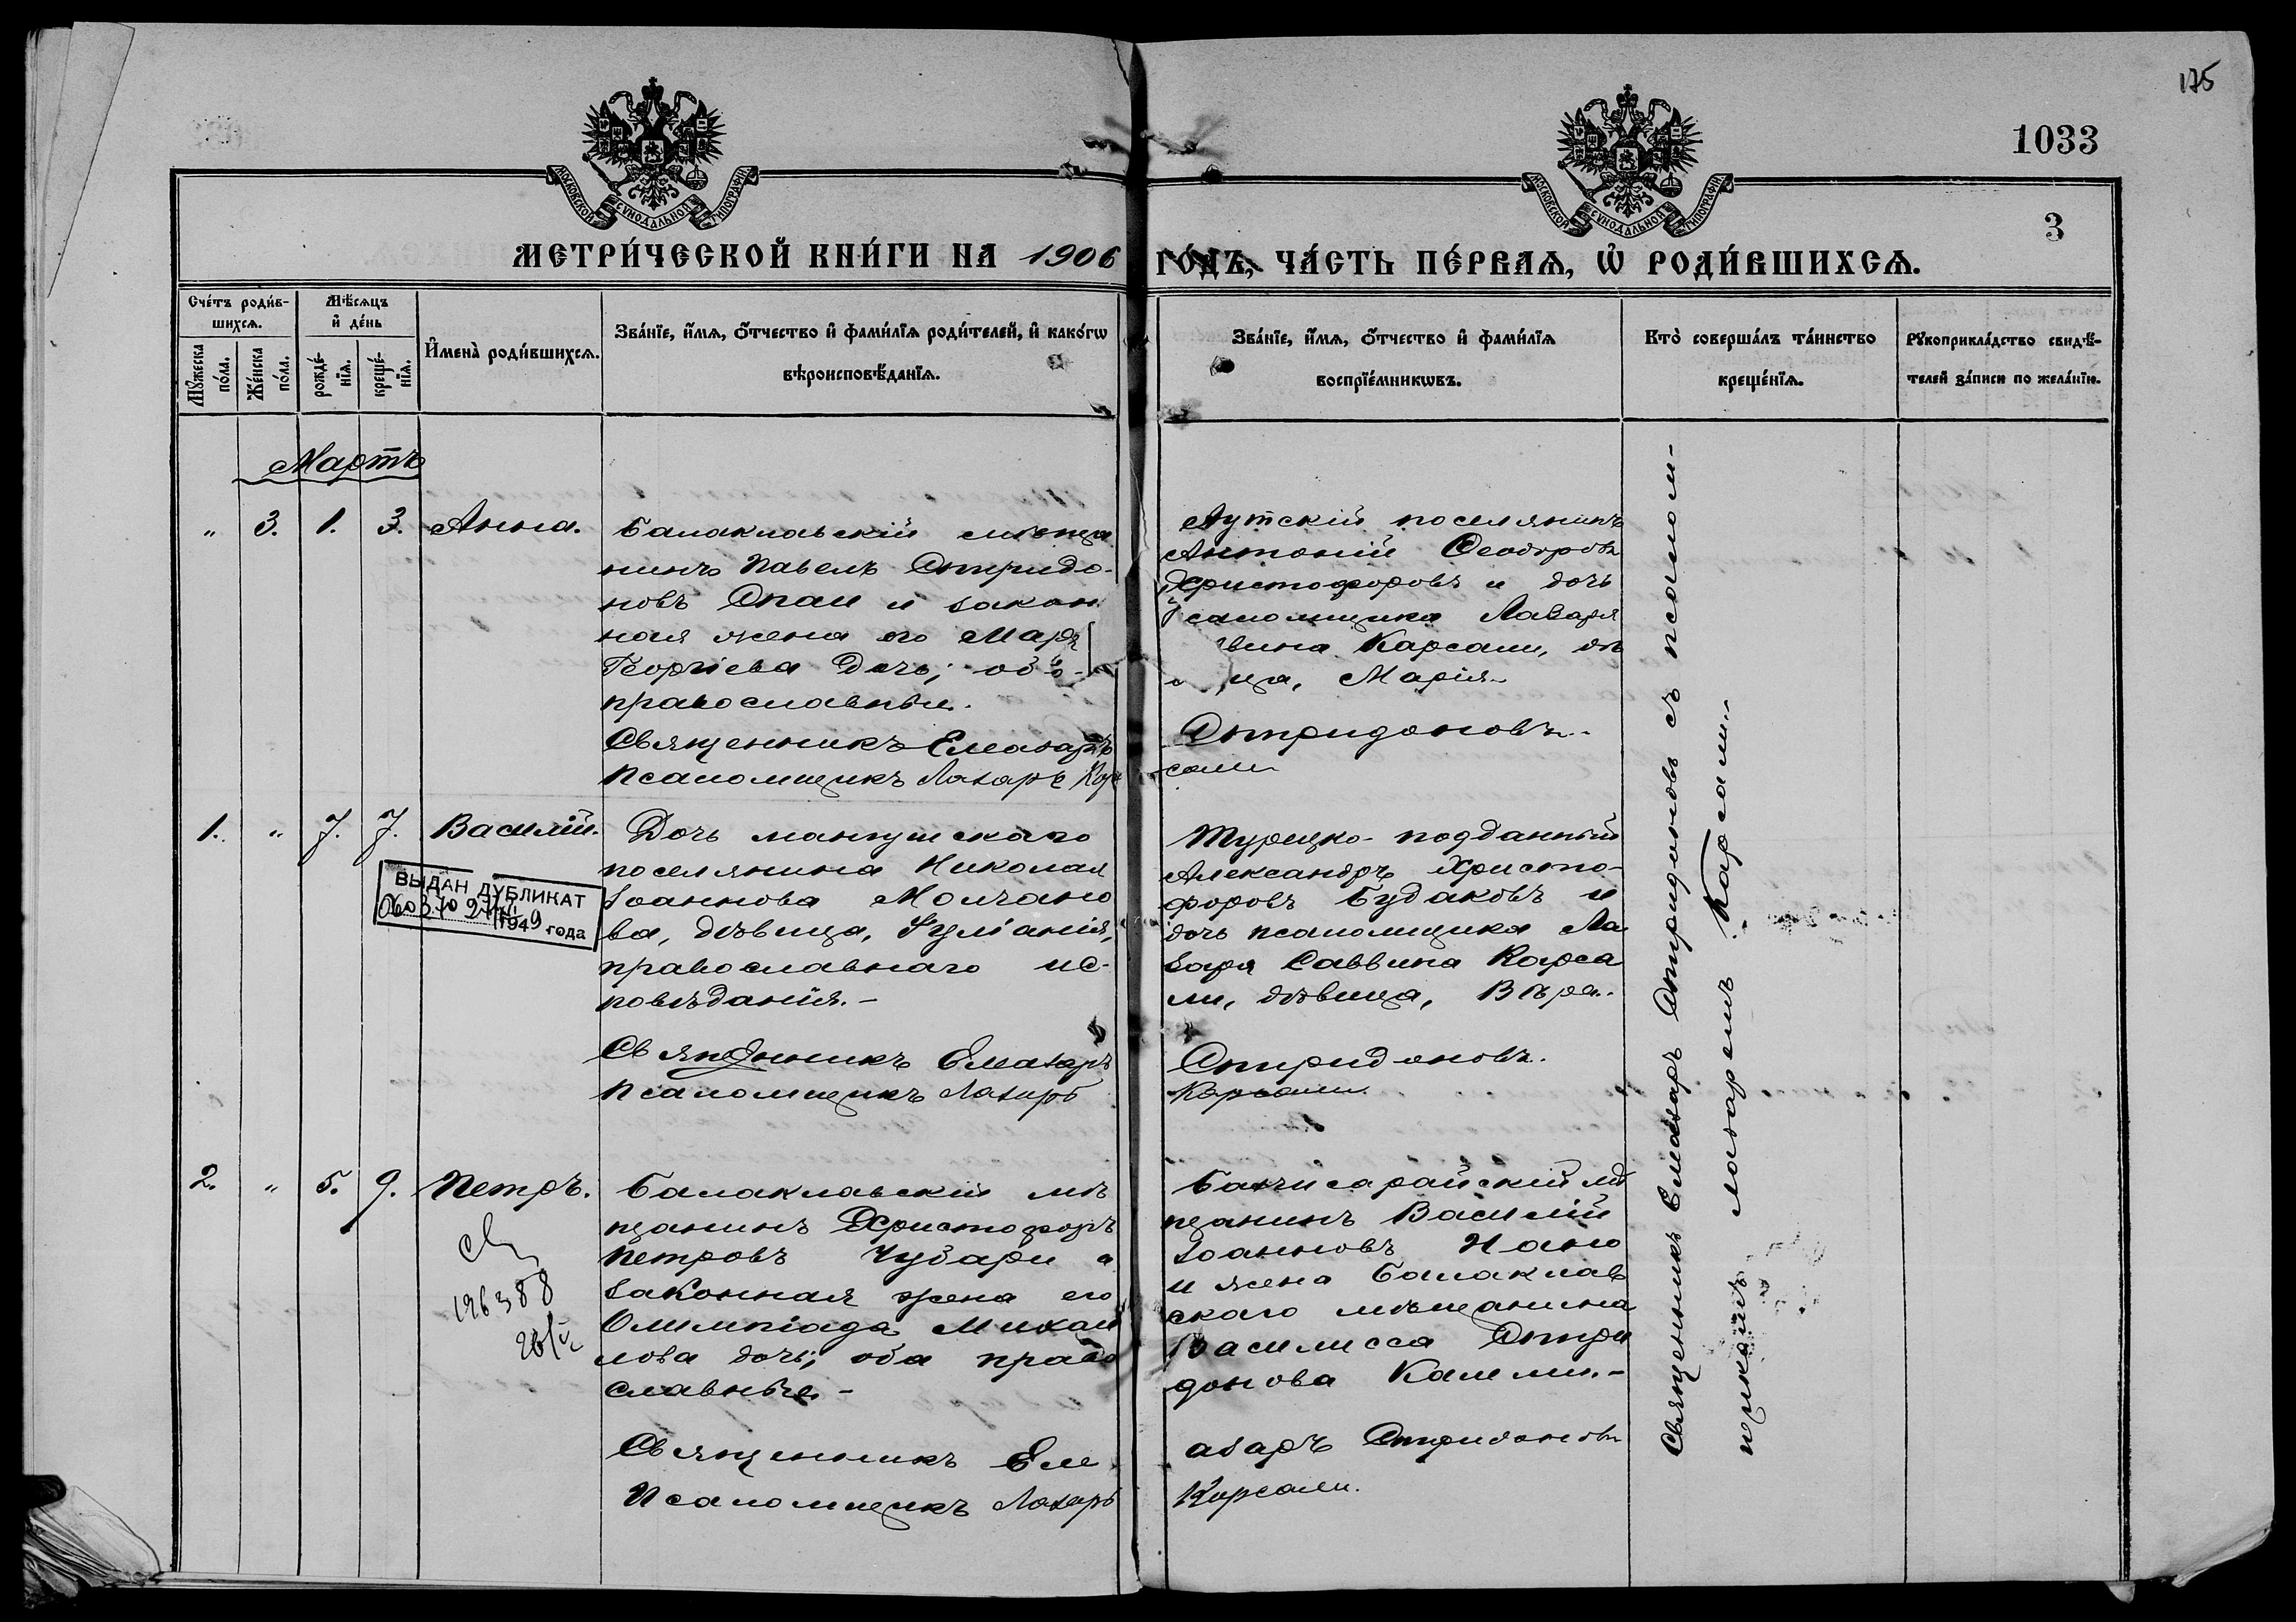 175
1033
3
МОСКОВСКОЙ СѴНОДАЛЬНОЙ ТИПОГРАФІИ
МОСКОВСКОЙ СѴНОДАЛЬНОЙ ТИПОГРАФІИ
МЕТРИ́ЧЕСКОЙ КНИ́ГИ НА 1906 ГО́ДЪ, ЧА́СТЬ ПЕ́РВАѦ, Ѡ҆ РОДИ́ВШИХСѦ.
Сче́тъ роди́в-
шихсѧ.
Мѣ́сѧцъ
и҆ де́нь
Мꙋ́жеска по́ла.
Же́нска по́ла.
рожде́-
нїѧ.
креще́-
нїѧ.
И҆мена̀ роди́вшихсѧ.
Зва́нїе, и҆́мѧ, ѻ҆́тчество и҆ фами́лїѧ роди́телей, и҆ како́гѡ
вѣроисповѣ́данїѧ.
Зва́нїе, и҆́мѧ, ѻ҆́тчество и҆ фами́лїѧ
воспрїе́мникѡвъ.
Кто̀ соверша́лъ та́инство
креще́нїѧ.
Рꙋкоприкла́дство свидѣ́-
телей за́писи по жела́нїю.
Мартъ
" 3. 1. 3. Анна.
Балаклавскій мѣща
нинъ Павелъ Спиридо-
новъ Спаи и закон
ная жена его Марія
Георгіева дочь; оба
православные.
Священникъ Елеазаръ
Псаломщикъ Лазарь Кар
Аутскій поселянинъ
Антоній Ѳеодоровъ
Христофоровъ и дочь
псаломщика Лазаря
вина Карсами, дѣ
ица, Марія
Спиридоновъ.
сами
1. " 7. 7. Василій.
ВЫДАН ДУБЛИКАТ
1949 года
Дочь мангушскаго
поселянина Николая
Іоаннова Молчано
ва, дѣвица, Іуліанія,
православнаго ис-
повѣданія.-
Священникъ Елеазаръ
Псаломщикъ Лазарь
Турецко-подданный
Александръ Христо-
форовъ Будаковъ и
дочь псаломщика Ла
заря Саввина Карса
ми, дѣвица, Вѣра.
Спиридоновъ.
Карсами.
2. " 5. 9. Петръ.
196388
Балаклавскій мѣ
щанинъ Христофоръ
Петровъ Чубари и
законная жена его
Олимпіада Михаи
лова дочь; оба право
славные.-
Священникъ Еле
Псаломщикъ Лазарь
Бахчисарайскій мѣ
щанинъ Василій
Іоанновъ
и жена Балаклав
скаго мѣщанина
Василисса Спири
донова.-
азаръ Спиридоновъ
Карсами.
Священникъ Елеазаръ Спиридоновъ съ псалом-
щикомъ Лазаремъ Карсами.